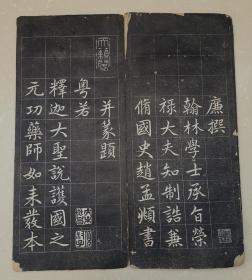 廉撰
翰林學士承旨榮
祿大夫知制誥兼
脩國史趙孟頫書
并篆題
粵若
釋迦大聖說護國之
元功藥師如來發本